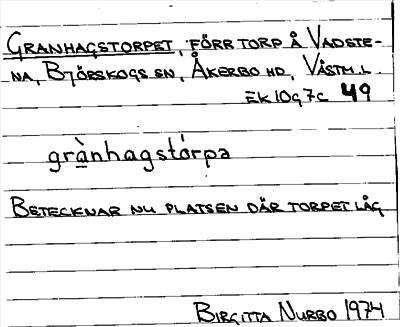 GRANHAGSTORPET, FÖRR TORP Å VADSTE-
NA, BJÖRSKOGS SN, ÅKERBO HD, VÄSTM. L.
EK 10G 7C 49
grànhagstórpə
BETECKNAR NU PLATSEN DÄR TORPET LÅG
BIRGITTA NURBO 1974